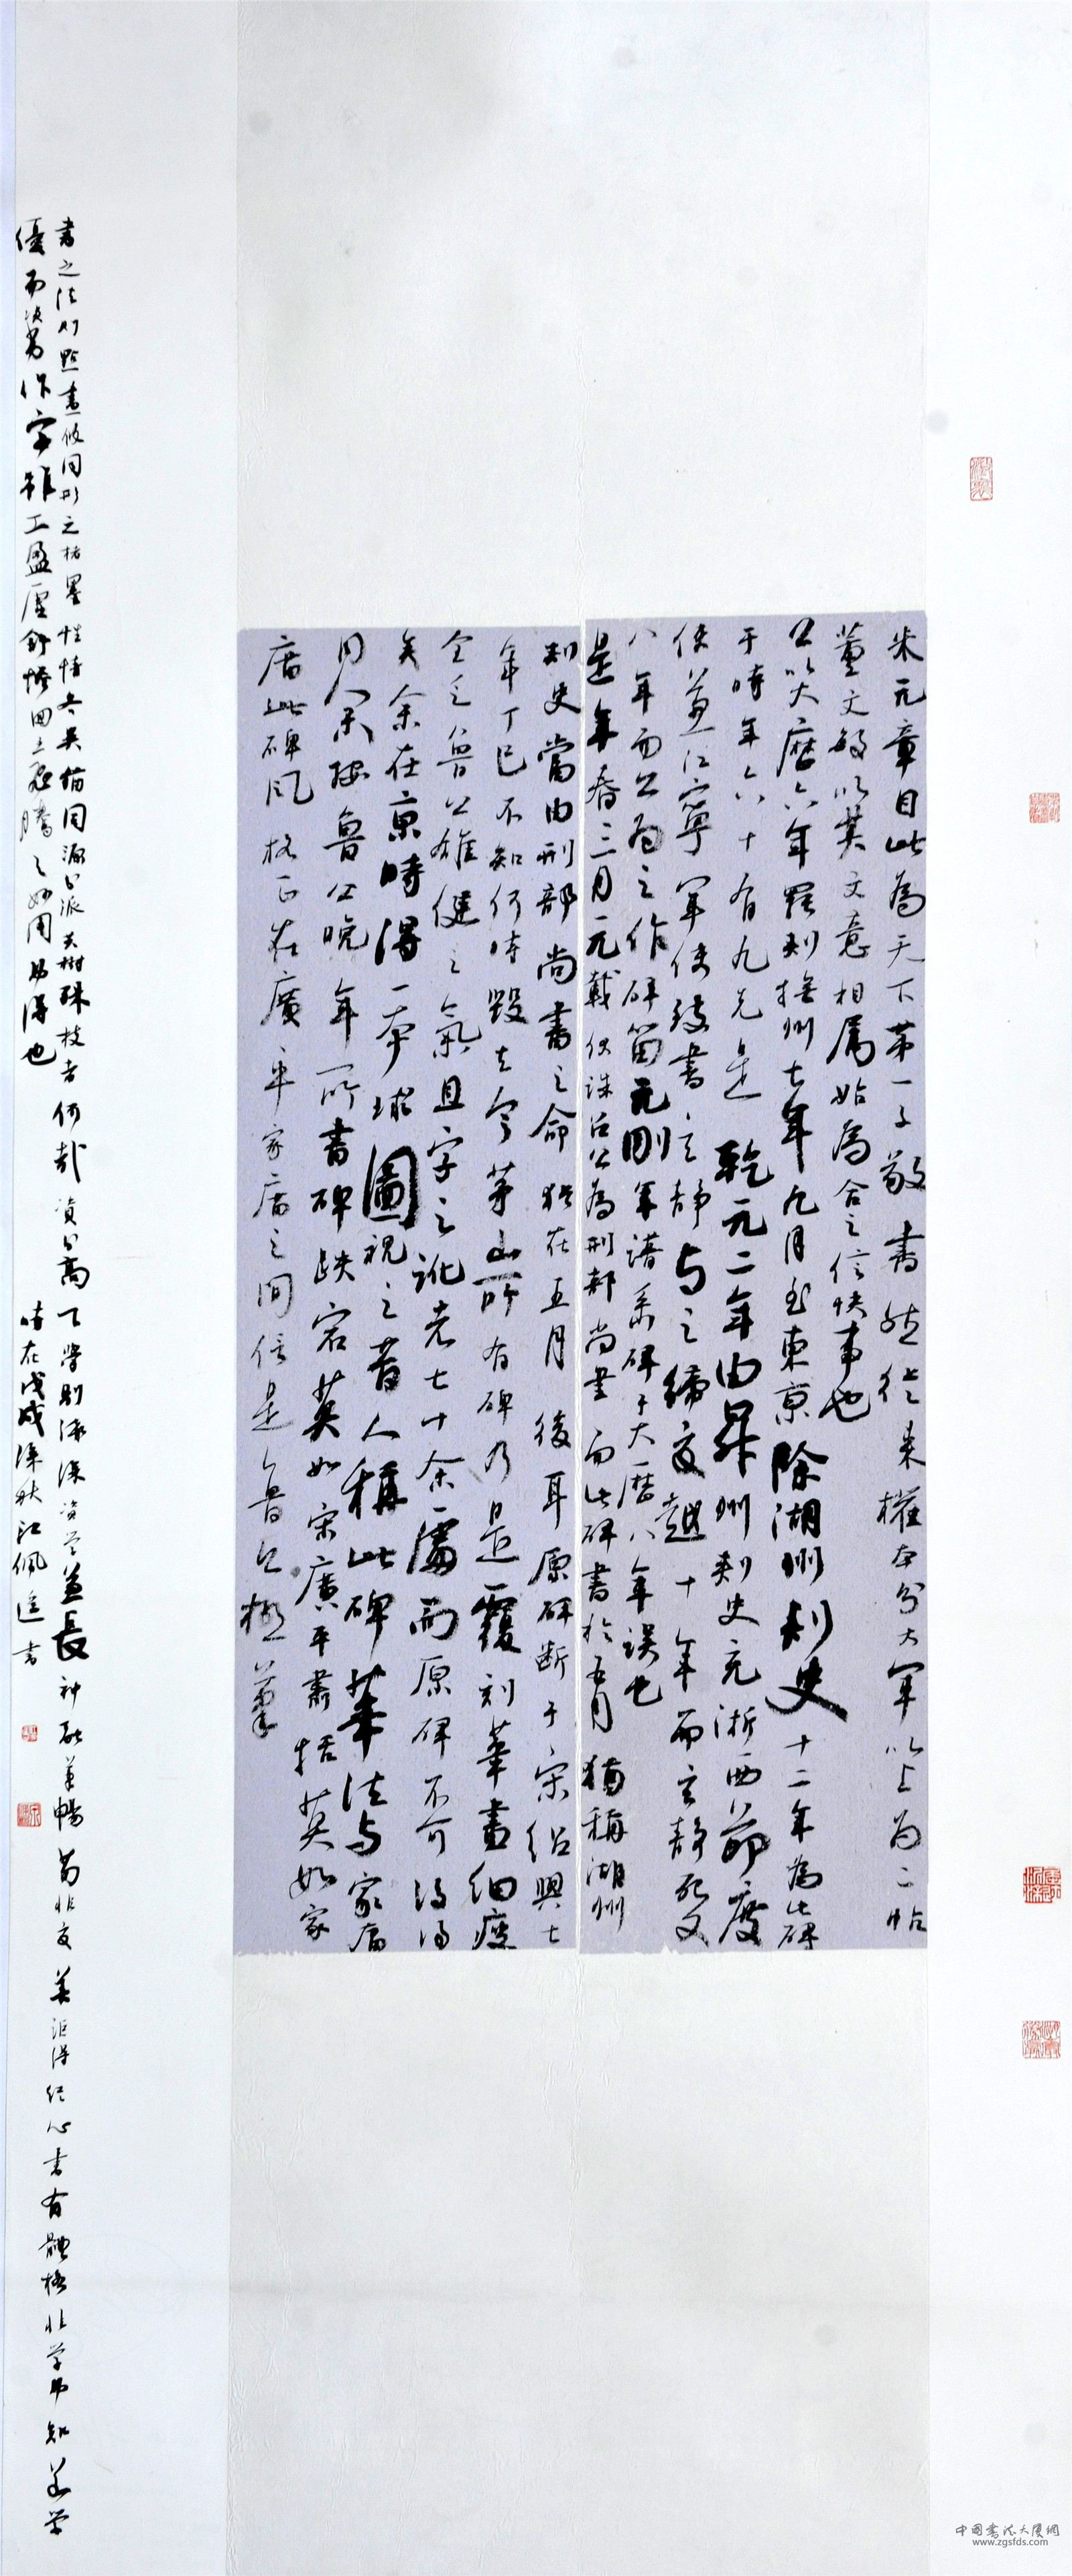 米元章目此為天下第一子敬書然從來權本分大軍以上為二帖
董文敏以其文意相屬始為合之信快事也
公以大曆六年罷刺撫州七年九月至東京除湖州刺史十二年為此碑
于時年六十有九先是乾元二年由昇州刺史充浙西節度
使兼江寧軍使致書玄靜与之締交越十年而玄靜死又
八年而公為之作碑留元剛年譜系碑于大曆八年誤也
是年春三月元載伏誅召公為刑部尚書而此碑書於五月猶稱湖州
刺史當由刑部尚書之命猶在五月後耳原碑斷于宋紹興七
年丁巳不知何時毀去今茅山所有碑乃是覆刻筆畫細瘦
全乏魯公雄健之氣且字之訛者七十余處而原碑不可得
矣余在京時得一本球圖視之昔人稱此碑筆法与家廟
同余按魯公晚年所書碑跌宕莫如宋廣平肅括莫如家
廟此碑風格正在廣平家廟之間信是魯公極筆
書之法則點畫攸同形之楮墨性情各異猶同源分派共樹殊枝者何哉資分高下學則淺深資學兼長神融筆暢苟非交善詎得從心書有體格非學弗知若學
優而資劣作字雖工盈虛舒慘回互飛騰之妙用弗得也
時在戊戌深秋江佩
中國書法大廈網
www.zgsfds.com